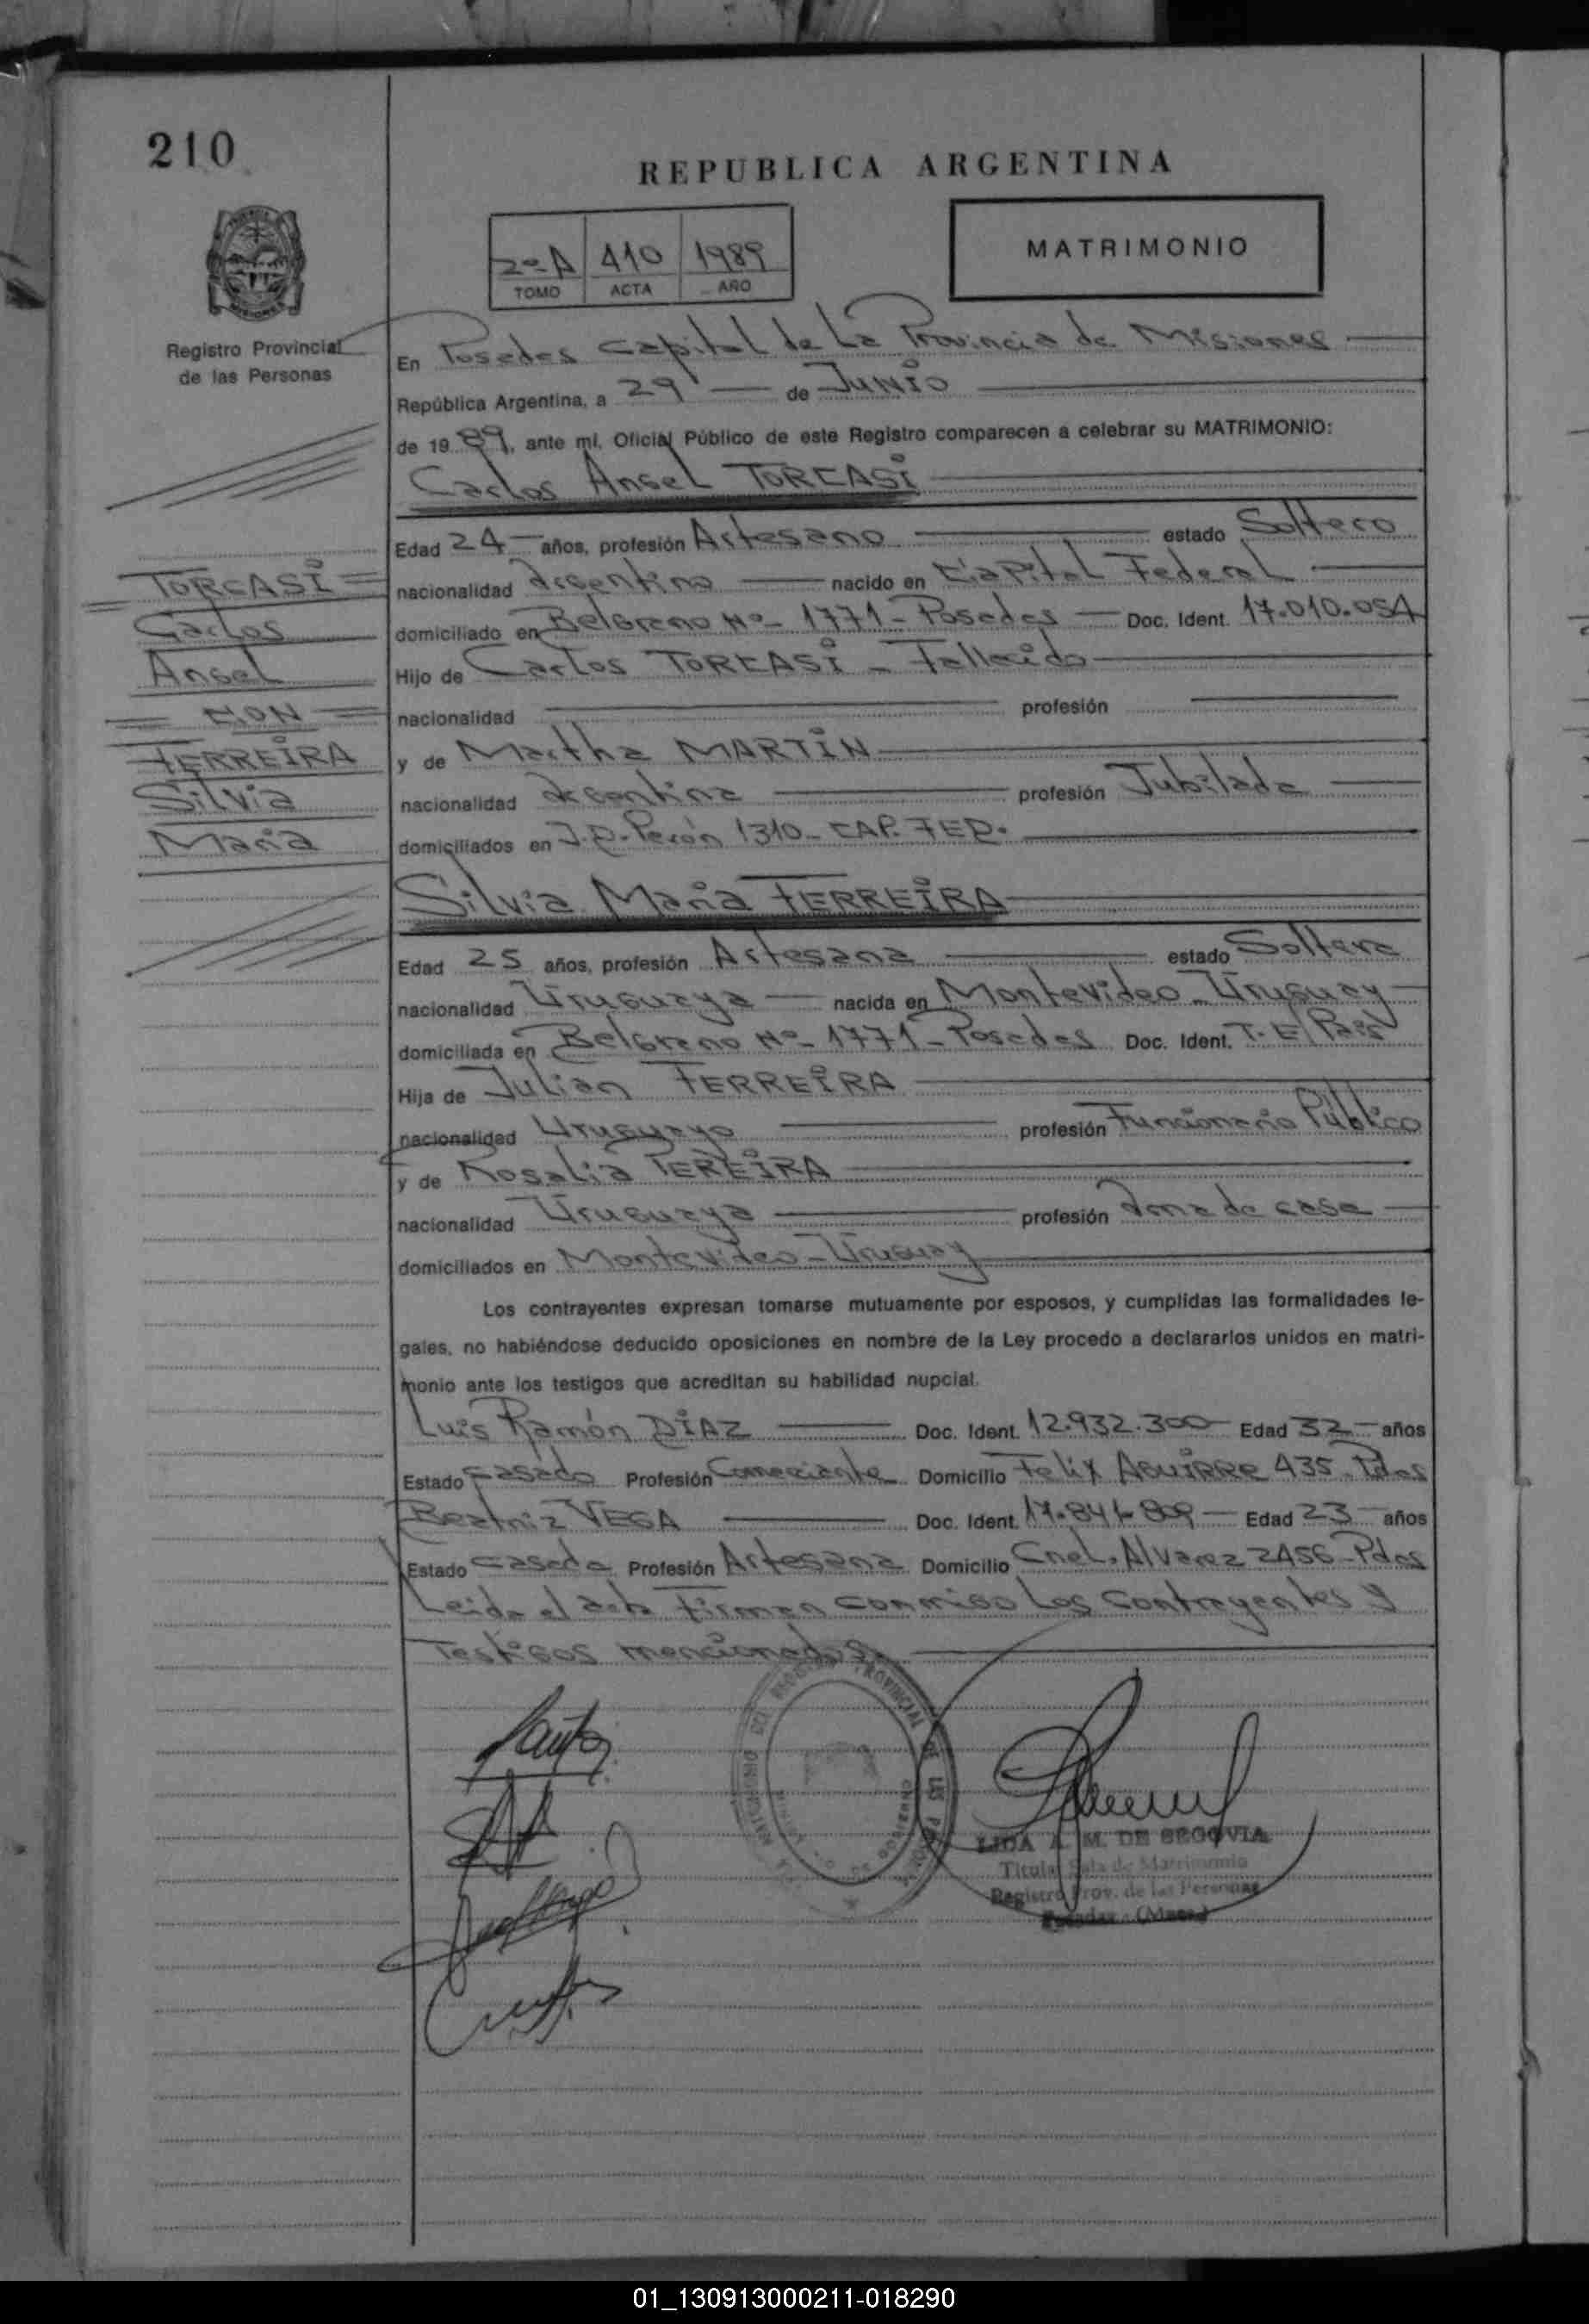 210
REPUBLICA ARGENTINA
2º-A 410 1989
TOMO ACTA AÑO
MATRIMONIO
Registro Provincial
de las Personas
En Posadas Capital de La Provincia de Misiones
República Argentina, a 29 de JUNIO
de 1989, ante mí, Oficial Público de este Registro comparecen a celebrar su MATRIMONIO:
Carlos Angel TORCASI
Edad 24 años, profesión Artesano estado Soltero
nacionalidad Argentino nacido en Capital Federal
domiciliado en Belgrano Nº- 1771- Posadas Doc. Ident. 17.010.054
Hijo de Carlos TORCASI - Fallecido
nacionalidad profesión
y de Martha MARTIN
nacionalidad Argentina profesión Jubilada
domiciliados en J.D. Perón 1310- CAP. FED.
TORCASI
Carlos
Angel
CON
FERREIRA
Silvia
María
Silvia María FERREIRA
Edad 25 años, profesión Artesana estado Soltera
nacionalidad Uruguaya nacida en Montevideo - Uruguay
domiciliada en Belgrano Nº- 1771- Posadas Doc. Ident.
Hija de Julian FERREIRA
nacionalidad Uruguayo profesión Funcionario Público
y de Rosalia PEREIRA
nacionalidad Uruguaya profesión Ama de casa
domiciliados en Montevideo - Uruguay
Los contrayentes expresan tomarse mutuamente por esposos, y cumplidas las formalidades le-
gales, no habiéndose deducido oposiciones en nombre de la Ley procedo a declararlos unidos en matri-
monio ante los testigos que acreditan su habilidad nupcial.
Luis Ramón DIAZ Doc. Ident. 12.932.300 Edad 32 años
Estado Casado Profesión Comerciante Domicilio Felix AGUIRRE 435 - Pdas
Beatriz VEGA Doc. Ident. 17.841.809 Edad 23 años
Estado Casada Profesión Artesana Domicilio Cnel. Alvarez 2456 - Pdas
Leida el acta Firman conmigo Los Contrayentes y
Testigos mencionados.
LIDA A. M. DE SEGOVIA
Titular Sala de Matrimonio
Registro Prov. de las Personas
Posadas - (Mnes.)
01_130913000211-018290